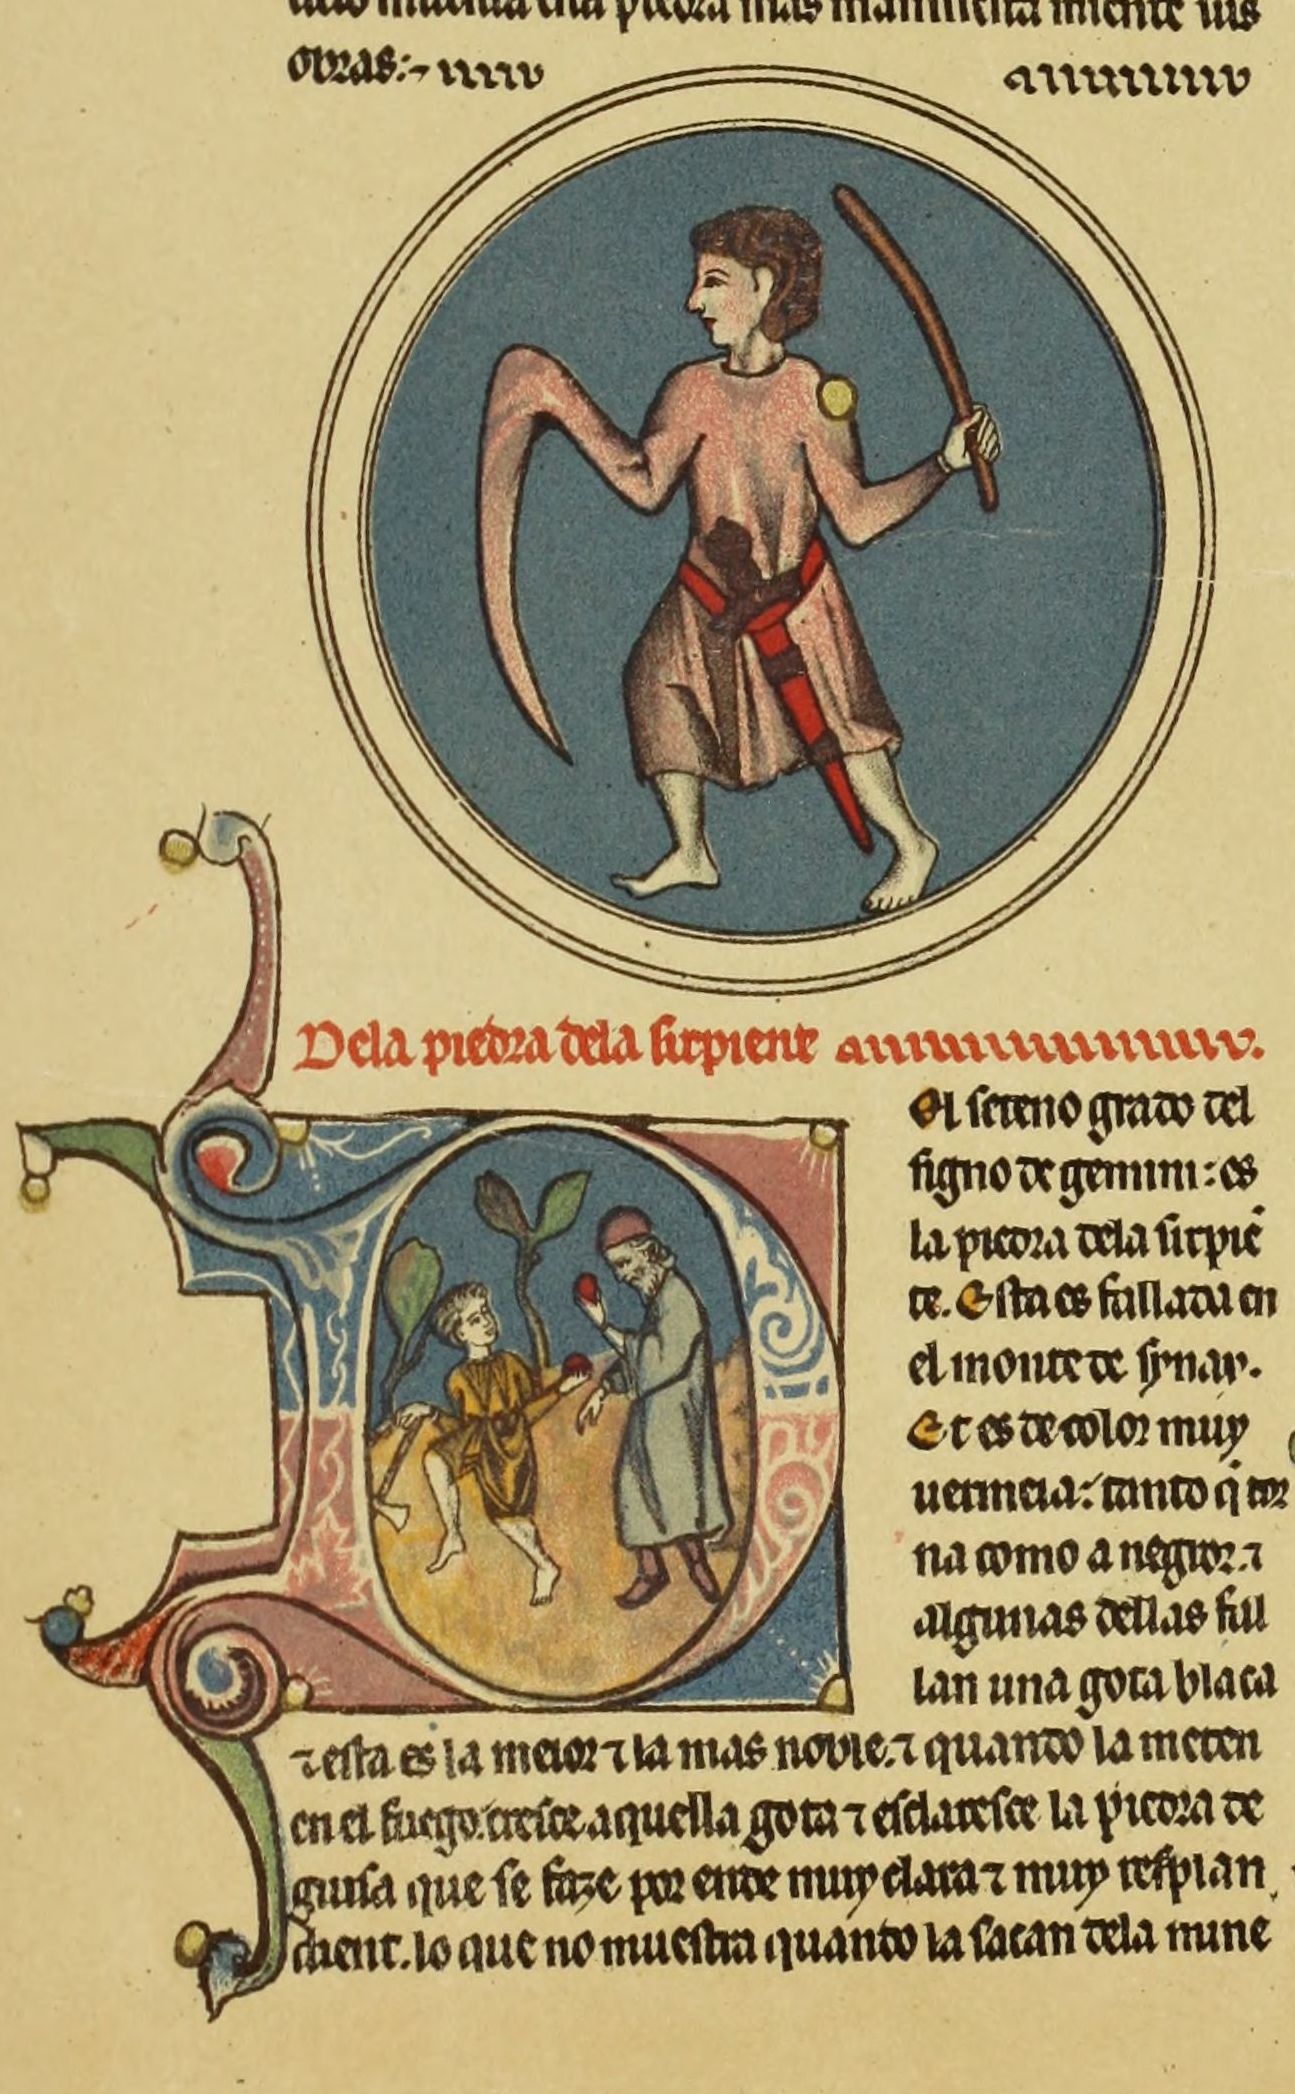 esta piedra mas manifiesta miente uis
obras:~
Dela piedra dela sirpiente
El seteno grado del
signo de gemini: es
la piedra dela sirpiẽ
te. Esta es fallada en
el monte de synay.
Et es de color muy
uermeia: tanto q̃ tor
na como a negror. ⁊
algunas dellas fall
lan una gota blãca
⁊ esta es la meior ⁊ la mas noble. ⁊ quando la meten
en el fuego. cresce aquella gota ⁊ esclaresce la piedra de
guisa que se faze por ende muy clara ⁊ muy resplan
dient. lo que no muestra quando la sacan dela mine